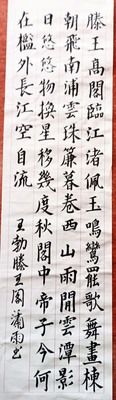 滕王高閣臨江渚佩玉鳴鸞罷歌舞畫棟
朝飛南浦雲珠簾暮卷西山雨閒雲潭影
日悠悠物換星移幾度秋閣中帝子今何
在檻外長江空自流 王勃滕王阁 瀟雨书